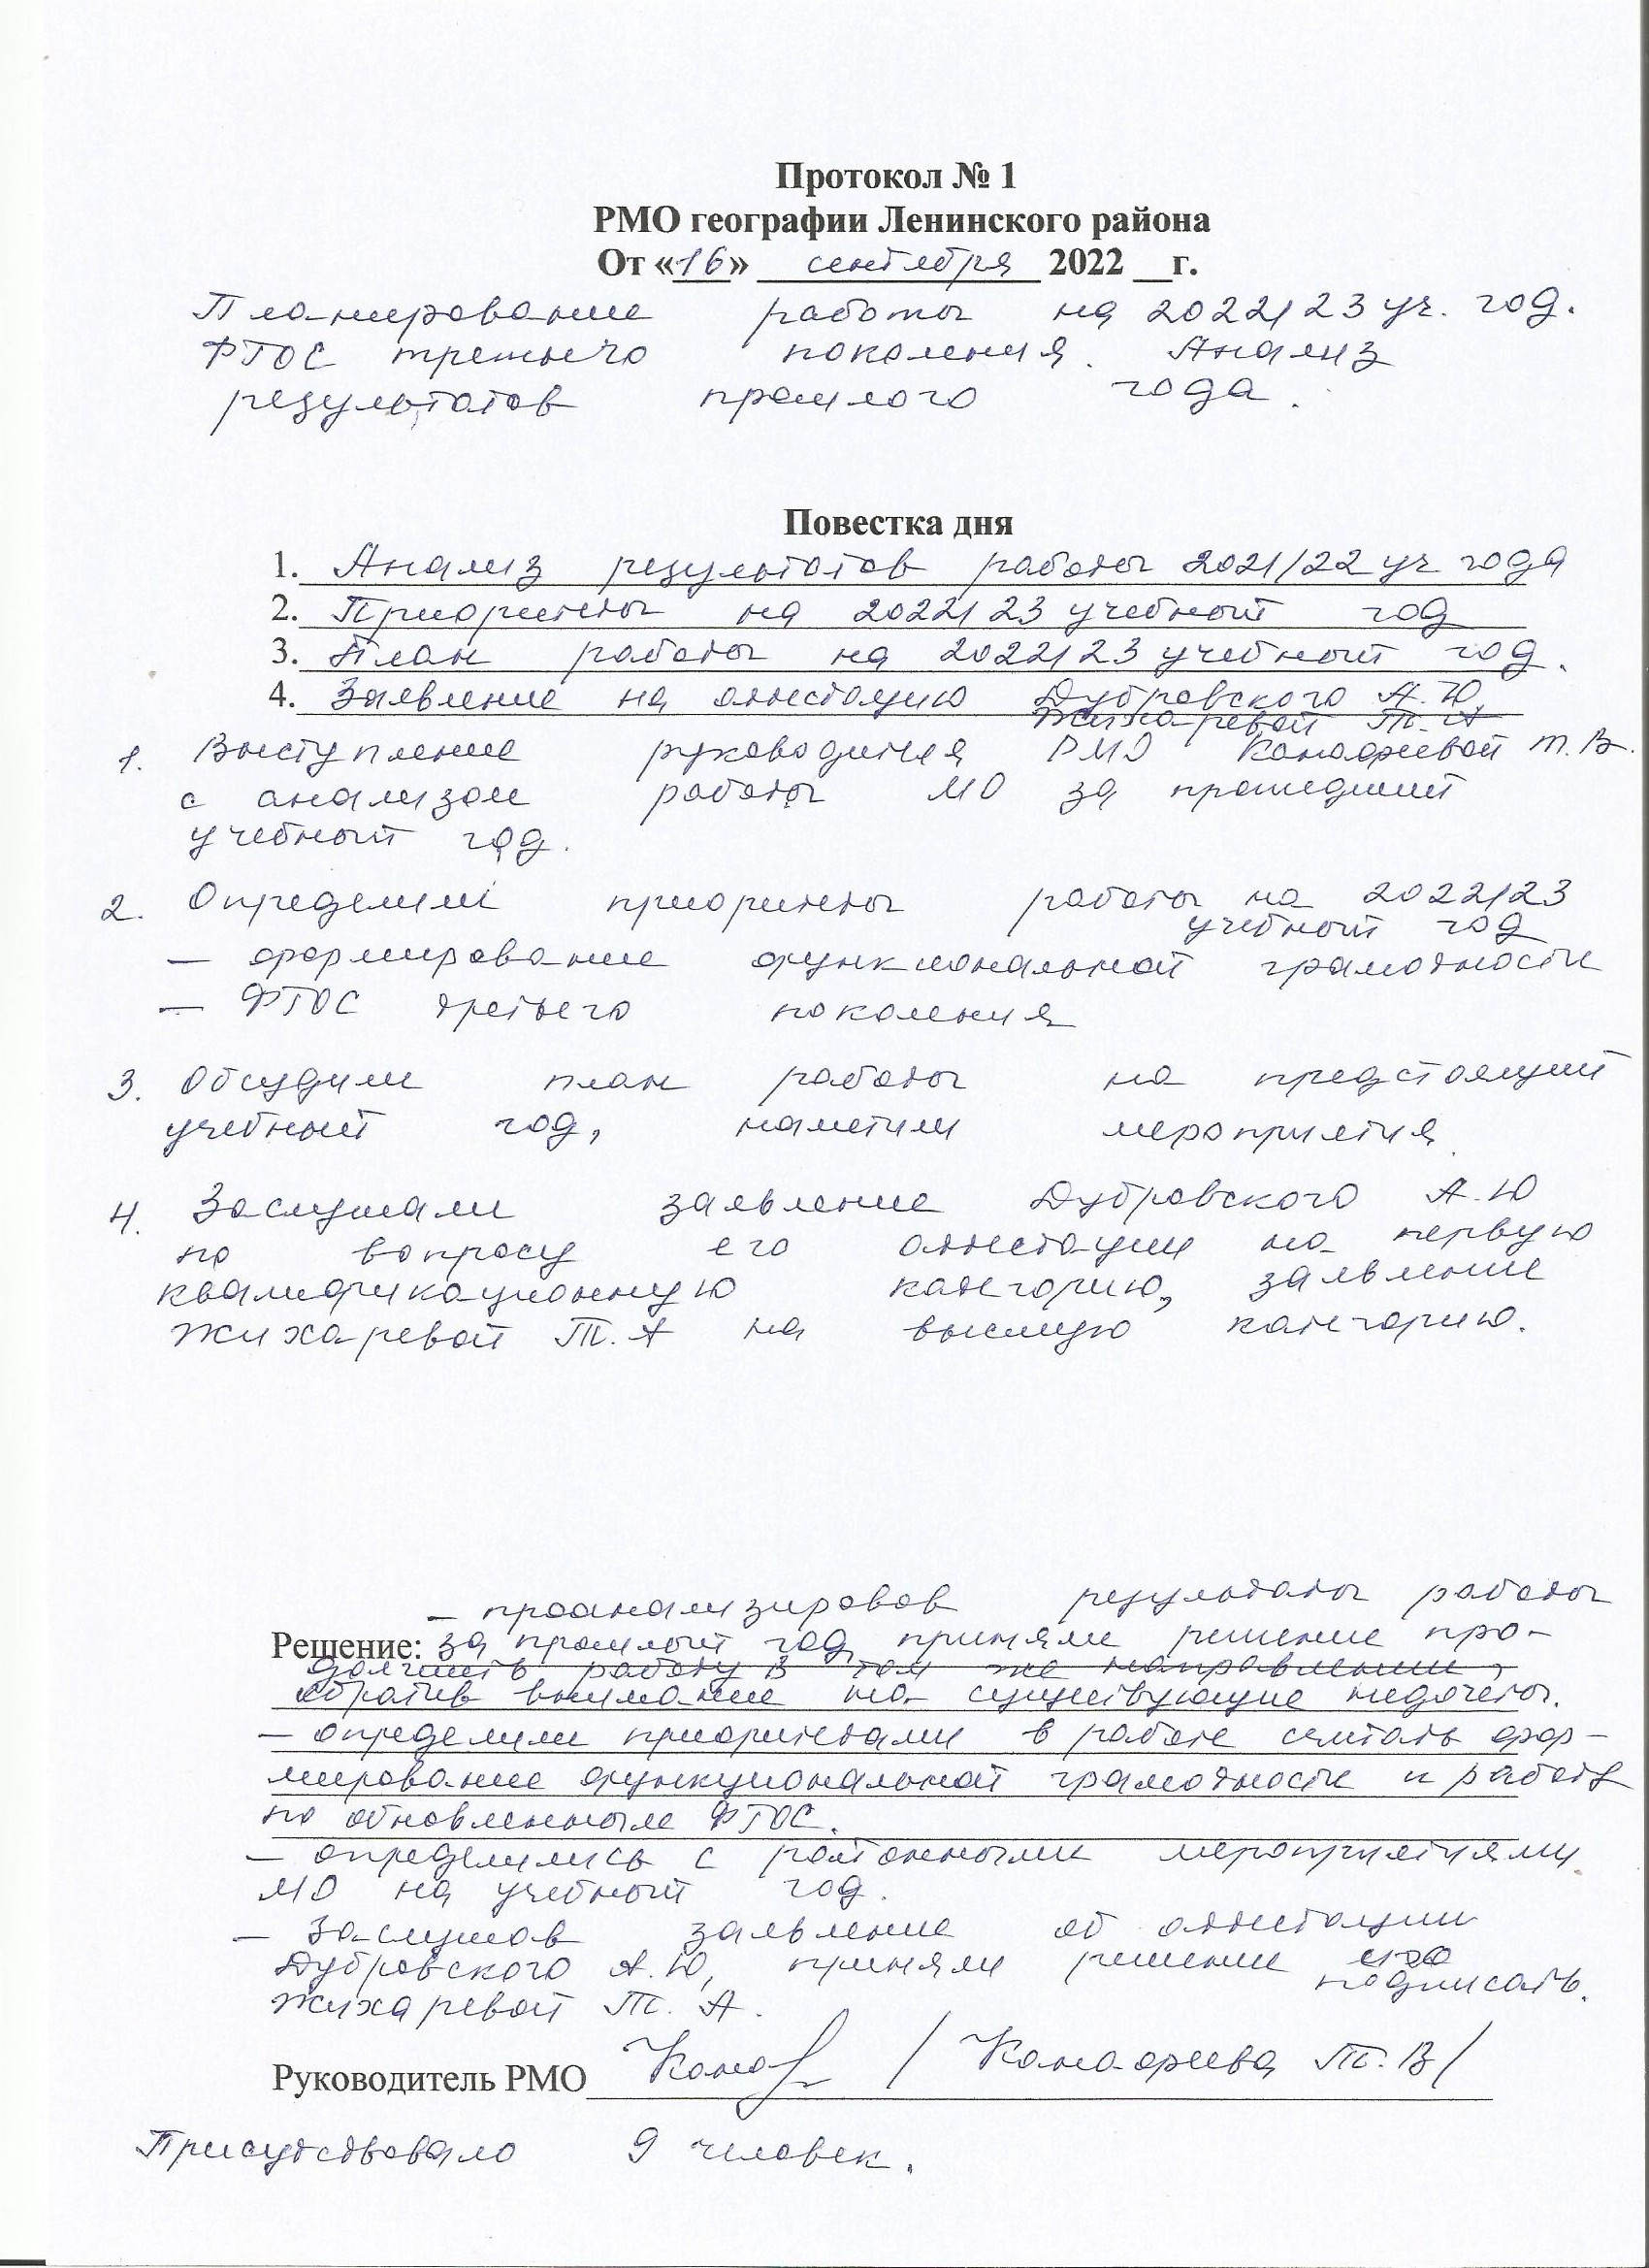 Протокол № 1
РМО географии Ленинского района
От «16» сентября 2022 __г.
Планирование работы на 2022/23 уч. год.
ФГОС третьего поколения. Анализ
результатов прошлого года.
Повестка дня
1. Анализ результатов работы 2021/22 уч года
2. Приоритеты на 2022/23 учебный год
3. План работы на 2022/23 учебный год.
4. Заявление на аттестацию Дубровского А.Ю,
Жихаревой Т.А
1. Выступление руководителя РМО Канафиевой Т.В.
с анализом работы МО за прошедший
учебный год.
2. Определили приоритеты работы на 2022/23
учебный год
— формирование функциональной грамотности
— ФГОС третьего поколения
3. Обсудили план работы на предстоящий
учебный год, наметили мероприятия.
4. Заслушали заявление Дубровского А.Ю
по вопросу его аттестации на первую
квалификационную категорию, заявление
Жихаревой Т.А на высшую категорию.
– проанализировав результаты работы
Решение: за прошлый год, приняли решение про-
должить работу в том же направлении,
обратив внимание на существующие недочеты.
– определили приоритетами в работе считать фор-
мирование функциональной грамотности и работу
по обновленным ФГОС.
– определились с районными мероприятиями
МО на учебный год.
– Заслушав заявление об аттестации
Дубровского А.Ю, приняли решение его
подписать.
Жихаревой Т. А.
Руководитель РМО / Канафиева Т.В/
Присутствовало 9 человек.